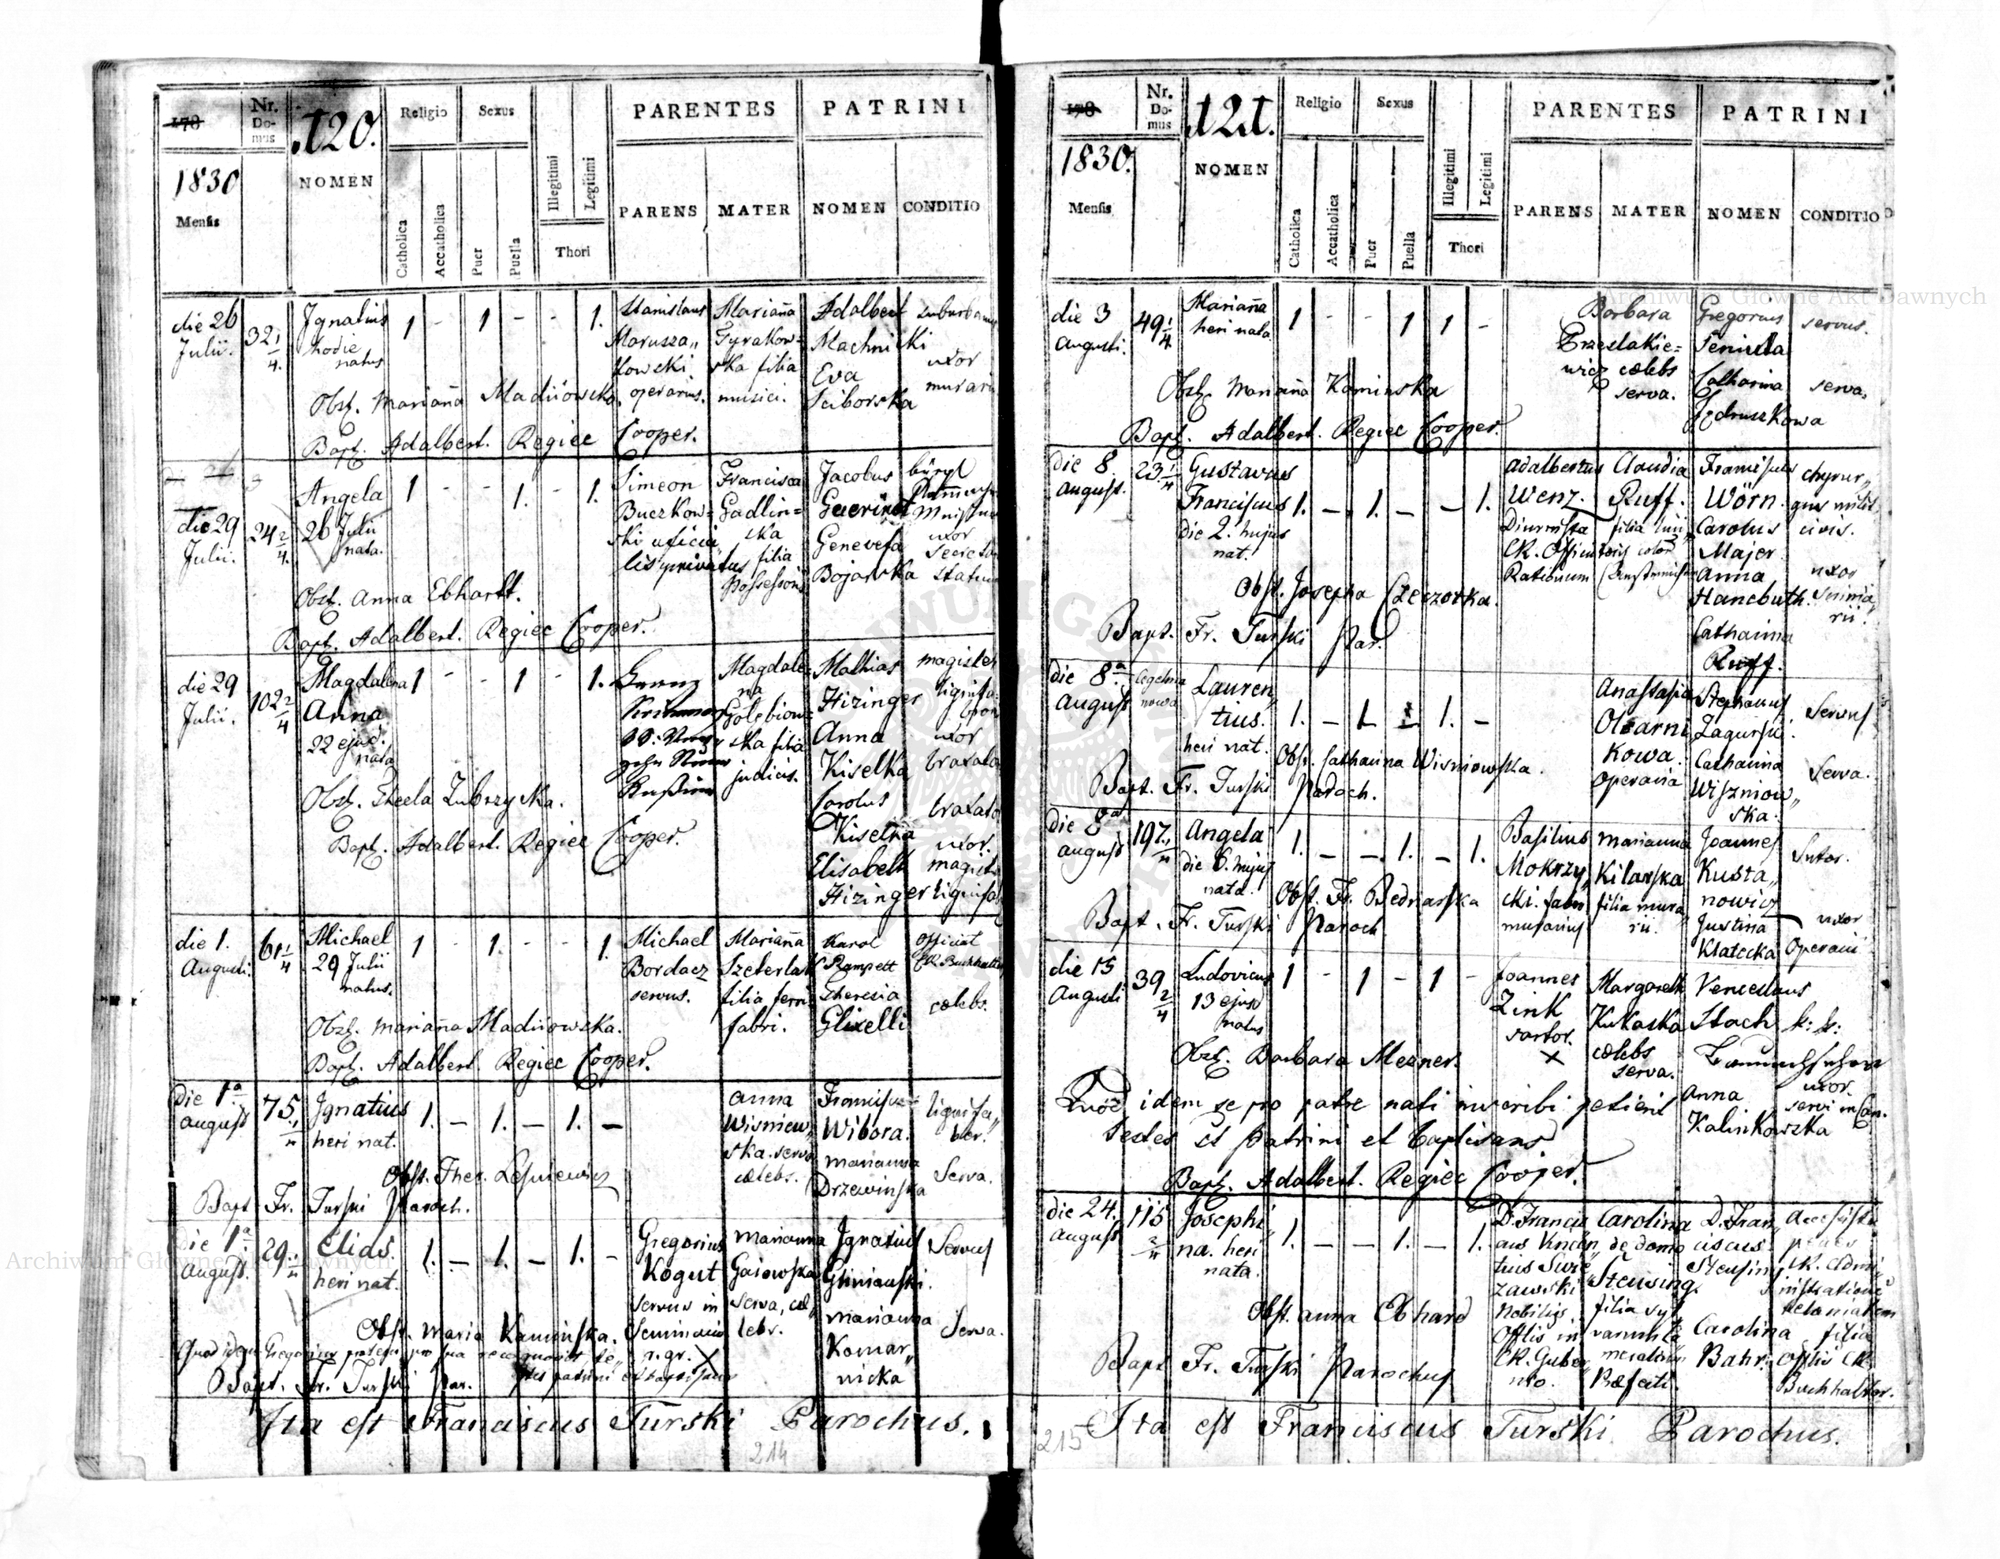 178
Nr. Do- mus
120.
Religio
Sexus
PARENTES
PATRINI
1830
Mensis
NOMEN
Catholica
Accatholica
Puer
Puella
Illegitimi
Legitimi
Thori
PARENS
MATER
NOMEN
CONDITIO
die 26
Julii.
32 1/4.
Ignatius
hodie
natus
1 - 1 - - 1.
Stanislaus
Marusza„
kowski
operarius.
Mariana
Gyrakow=
ska filia
musici.
Adalbert
Machnicki
Eva
Sciborska
suburbanus
uxor
murarii
Obst. Mariana Madujowska.
Bapt. Adalbert. Regiec Cooper.
die 29
Julii.
24 2/4.
Angela
26 Julii
nata.
1 - - 1. - 1.
Simeon
Buczkow=
ski
privatus
Francisca
Gadlin=
ska
filia
Possessoris
Jacobus
Guerinot
Genevefa
Bojarska
bürgl
uxor
Obst. Anna Ebhardt.
Bapt. Adalbert. Regiec Cooper.
die 29
Julii.
102 2/4
Magdalena
Anna
22 ejusd.
nata
1 - - 1 - 1.
Magdale=
na
Golębiow=
ska filia
judicis.
Mathias
Hizinger
Anna
Kiselka
Carolus
Kiselka
Elisabeth
Hizinger
magister
uxor
uxor.
Obst. Thecla Zubrzycka.
Bapt. Adalbert. Regiec Cooper.
die 1.
Augusti.
61 1/4
Michael
29 Julii
natus.
1 - 1. - - 1.
Michael
Bordacz
servus.
Mariana
Szeterlak
filia ferri
fabri.
Karol
Rampelt
Theresia
Glixelli
Official
CR Buchhalter
cœlebs.
Obst. Mariana Madujowska.
Bapt. Adalbert. Regiec Cooper.
die 1ª
august
75.
Ignatius
heri nat.
1. - 1. - 1. -
Anna
Wisniew„
ska. serva
cœlebs.
Wibora.
Marianna
Drzewinska
lignifa„
ber.
Serva.
Obst. Ther. Lesniewicz
Bapt Fr. Turski Paroch.
die 1ª
august.
29
Elias.
heri nat.
1. - 1. - 1. -
Gregorius
Kogut
servus in
Seminario
r. gr. X
Marianna
Gaiowska
serva, cœ„
lebs.
Ignatius
Gliniauski.
Marianna
Komar„
nicka
Servus
Serva.
Obst. Maria Kaminska.
Quod idem Gregorius
Bapt. Fr. Turski Par.
Ita est Franciscus Turski Parochus.
214
178
Nr. Do- mus
121.
Religio
Sexus
PARENTES
PATRINI
1830.
Mensis
NOMEN
Catholica
Accatholica
Puer
Puella
Illegitimi
Legitimi
Thori
PARENS
MATER
NOMEN
CONDITIO
die 3
Augusti.
49 1/4
Mariana
heri nata
1 - - 1 1 -
Barbara
Przeslakie=
wicz cœlebs
serva.
Gregorius
Seniuta
Catharina
Jędruszkowa
servus.
serva.
Obst. Mariana Kaminska
Bapt. Adalbert. Regiec Cooper.
die 8
August.
23 1/4
Gustavus
Franciscus
die 2. hujus
nat.
1. - 1. - - 1.
Adalbertus
Wenz.
Diurnista
CR. Officii
Rationum
Claudia
Ruff.
filia
Franciscus
Wörn.
Carolus
Majer.
Anna
Hancbuth.
Catharina
Ruff.
chyrur„
gus milit.
civis.
uxor
Obst. Josepha Czeczotka.
Bapt. Fr. Turski Par.
die 8ª
August
Lauren„
tius.
heri nat.
1. - 1 1 1. -
Anastasia
Olearni
kowa.
operaria
Stephanus
Zagurski.
Catharina
Wiszniow„
ska.
Servus
Serva.
Obst. Catharina Wisniowska.
Bapt. Fr. Turski Paroch.
die 8ª
august
197
Angela
die 6. hujus
nata.
1. - - 1. - 1.
Basilius
Mokrzy„
cki. faber
murarius
Marianna
Kilarska
filia mura„
rii.
Joannes
Kusta„
nowicz
Justina
Klatecka
Sutor.
uxor
Operarii
Obst. Fr. Bednarska
Bapt. Fr. Turski Paroch
die 15
Augusti
39 2/4
Ludovicus
13 ejusd
natus
1 - 1 - 1 -
Joannes
Zink
sartor.
X
Margareth
Kukaska
cœlebs
serva.
Venceslaus
Stach
Anna
Kalinkowska
k: k:
uxor
servi in Can.
Obst. Barbara Mezner.
Quod idem se pro patre nati inscribi petierit
testes et Patrini et Baptisans
Bapt. Adalbert. Regiec Cooper.
die 24.
August
115 2/4
Josephi„
na. heri
nata.
1. - - 1. - 1.
D. Francis
cus Vincen„
tius Swie
zawski
Nobilis.
Offlis in
CR. Guber„
nio.
Carolina
de domo
Steusing
filia
D. Fran„
ciscus
Steusing
Carolina
Bahr.
Accessista
penes
CR. Admi„
nistrationi
filia
Offlis CR.
Buchhalter.
Obst. Anna Ebhard
Bapt Fr. Turski Parochus
Ita est Franciscus Turski Parochus.
215
Archiwum Główne Akt Dawnych
Archiwum Główne Akt Dawnych